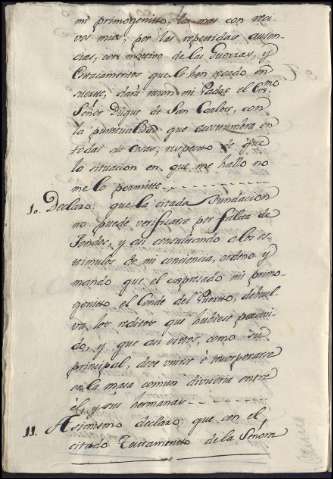 mi primogenito, la mas con
vos mia: por las repetidas ausen-
cias, con motivo de las Guerras, y
que le han
mi Padre el Exmo
Señor Duque de San Carlos, con
la puntualidad que acostumbra en
todas sus cosas, respecto de que
la situacion en que me hallo no
me lo permite.
10. Declaro: que la citada Fundacion
no puede verificarse por falta de
fondos, y asi consultando a los es-
timulos de mi conciencia, ordeno y
mando que el expresado mi primo-
genito el Conde del Puerto, debuel-
va los reditos que hubiese percivi-
do, y que asi estos, como su
principal, deve unirse è incorporarse
en la masa comun divisoria entre
èl, y sus hermanas.
11. Asimismo declaro que con el
citado Testamento de la Señora